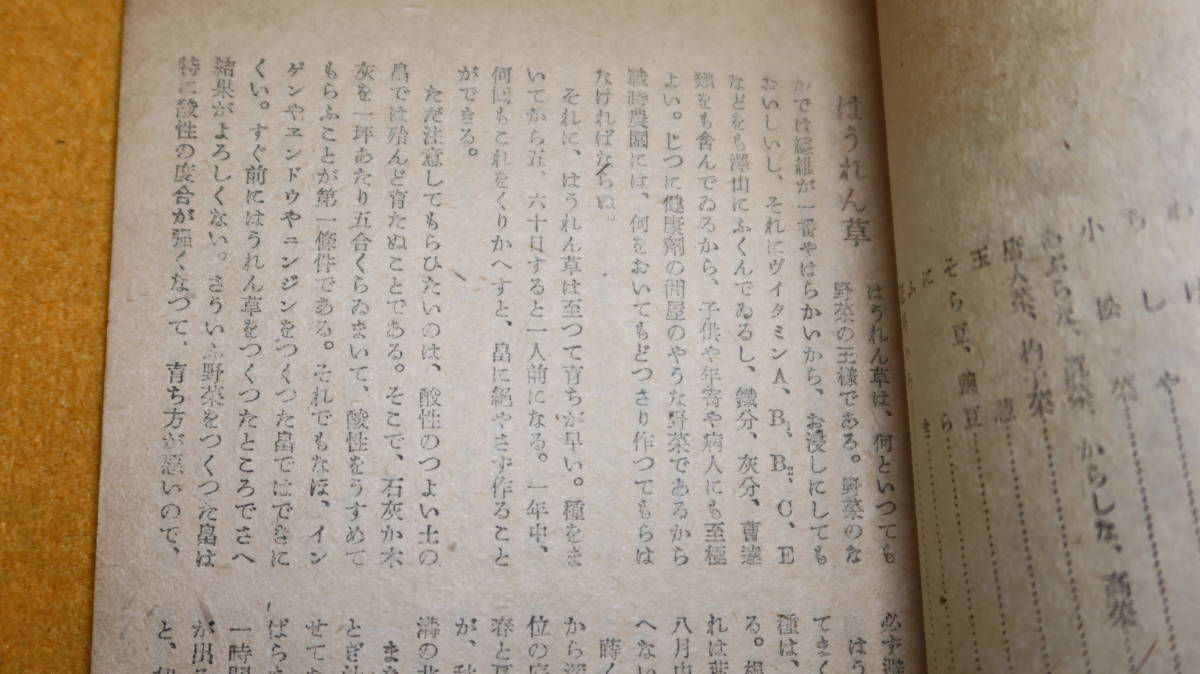 わけ
しやら
ちし
小松菜
あぶらな、
からしな、高菜
唐人菜、杓子菜
玉葱
そら豆、豌豆
にら
はうれん草
はうれん草は、何といつても
野菜の王様である。野菜のな
かでは纎維が一番やはらかいから、お浸しにしても
おいしいし、それにヴイタミンA、B₁、B₂、C、E
などをも澤山にふくんでゐるし、鐵分、灰分、曹達
類をも含んでゐるから、子供や年寄や病人にも至極
よい。じつに健康劑の問屋のやうな野菜であるから
戰時農園には、何をおいてもどつさり作つてもらは
なければならぬ。
それに、はうれん草は至つて育ちが早い。種をま
いてから五、六十日すると一人前になる。一年中、
何回もこれをくりかへすと、畠に絶やさず作ること
ができる。
ただ注意してもらひたいのは、酸性のつよい土の
畠では殆んど育たぬことである。そこで、石灰か木
灰を一坪あたり五合くらゐまいて、酸性をうすめて
もらふことが第一條件である。それでもなほ、イン
ゲンやヱンドウやニンジンをつくつた畠ではできに
くい。すぐ前にはうれん草をつくつたところでさへ
結果がよろしくない。さういふ野菜をつくつた畠は
特に酸性の度合が強くなつて、育ち方が惡いので、
必ず避
はう
てきく
種は、
る。根
れは葉
八月中
へない
蒔く
から深
位の底
春と夏
が、秋
溝の北
また
とぎ汁
せてか
ばらま
一時間
が出る
と、